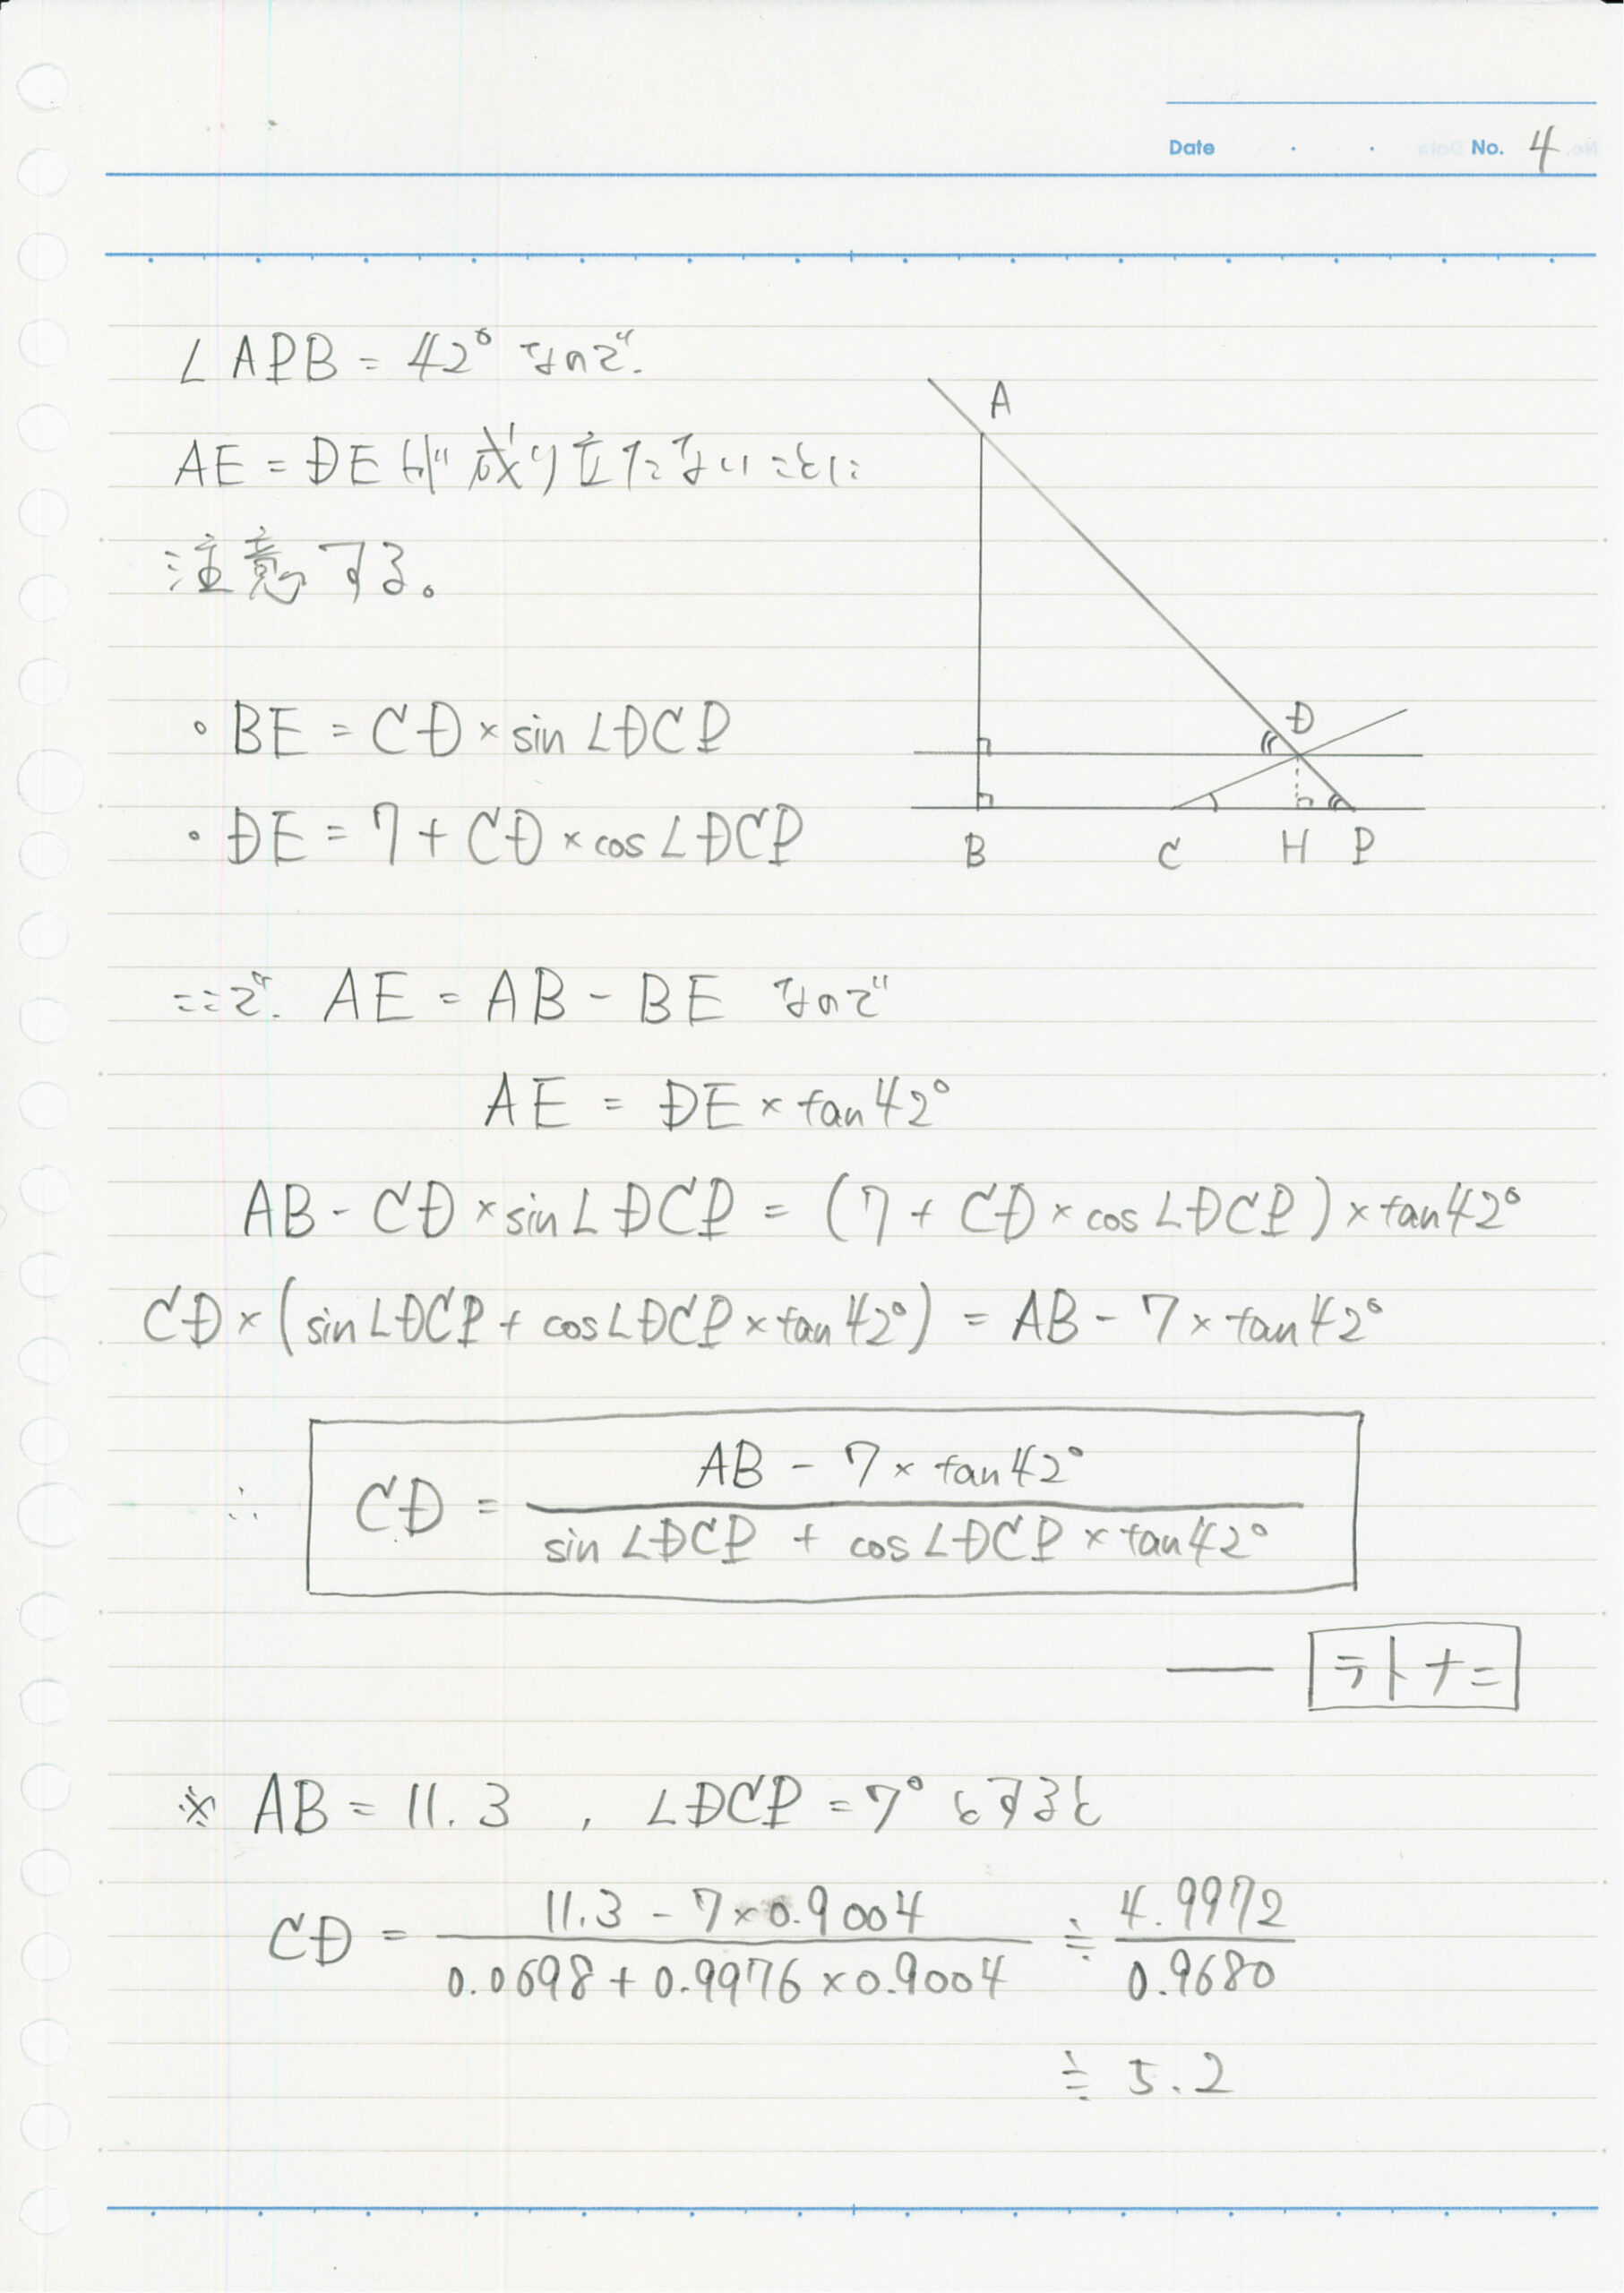 Date ・ ・ No. 4
∠APB = 42° なので、
AE = DE が成り立たないことに
注意する。
A
D
B C H P
・BE = CD × sin∠DCP
・DE = 7 + CD × cos∠DCP
ここで、AE = AB - BE なので
AE = DE × tan42°
AB - CD × sin∠DCP = (7 + CD × cos∠DCP) × tan42°
CD × (sin∠DCP + cos∠DCP × tan42°) = AB - 7 × tan42°
AB - 7 × tan42°
∴ CD =
sin∠DCP + cos∠DCP × tan42°
テトナニ
※ AB = 11.3 , ∠DCP = 7° とすると
11.3 - 7×0.9004 4.9972
CD = ≒
0.0698 + 0.9976 ×0.9004 0.9680
≒ 5.2